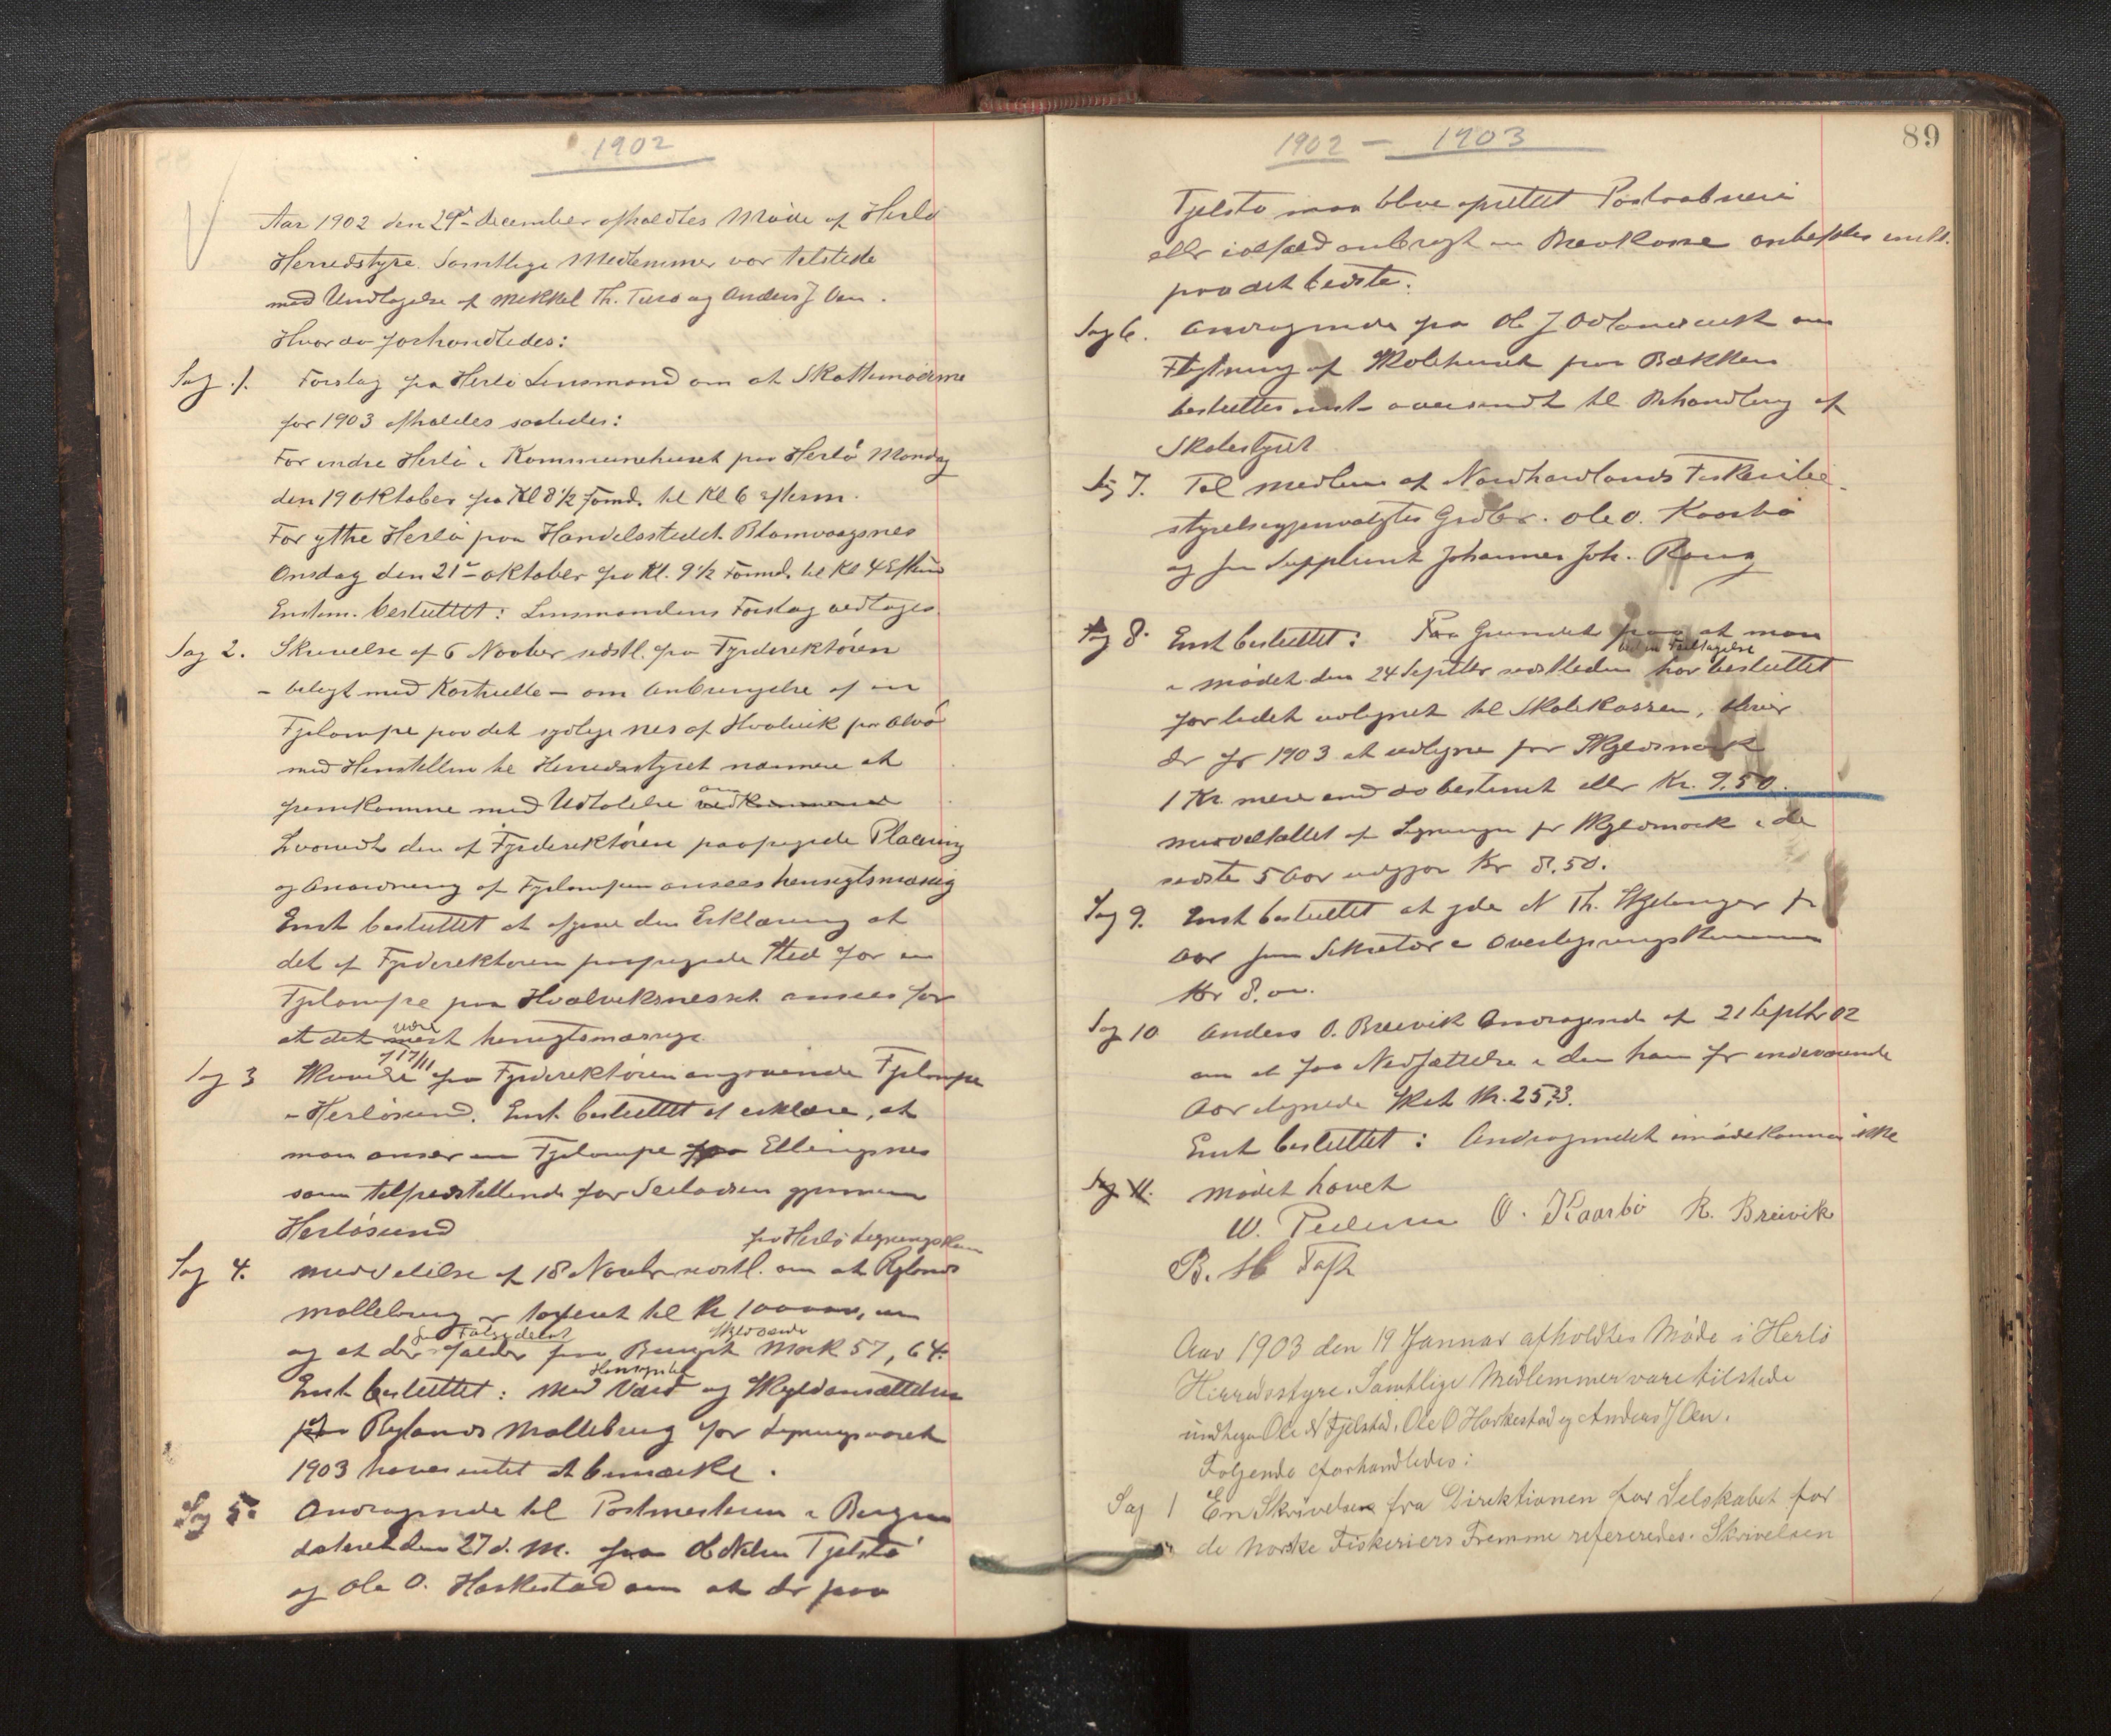 1902
Aar 1902 den 29de December afholdtes Møde af Herlø
Herredstyre. Samtlige Medlemmer var tilstede
med Undtagelse af Mikkel Th. Turø og Anders J Øen.
Hvor da forhandledes:
Sag 1. Forslag fra Herlø Lensmand om at Skattemøderne
for 1903 afholdes saaledes:
For indre Herlø i Kommunehuset paa Herlø Mandag
den 19 Oktober fra Kl 8 1/2 Formd. til Kl 6 efterm.
For ytre Herlø paa Handelsstedet Blomvaagsnes
Onsdag den 21de Oktober fra Kl. 9 1/2 Formd. til Kl 4 Eftmd
Enstem. besluttet: Lensmandens Forslag vedtages
Sag 2. Skrivelse af 6 Novber sidstl. fra Fyrdirektøren
- belagt med Kartskitse - om Anbringelse af en
Fyrlampe paa det sydlige nes af Hvalvik paa Alvø
med Henstillen til Herredsstyret nærmere at
fremkomme med Udtalelse om vedkommende
hvorvidt den af Fyrdirektøren paapegede Placering
og Anordning af Fyrlampen ansees hensigtsmæsig
Enst besluttet at afgive den Erklæring at
det af Fyrdirektøren paapegede Sted for en
Fyrlampe paa Hvalviksnesset ansees for
at det være mest hensigtsmæssige.
Sag 3 Skrivelse af 17/11 fra Fyrdirektøren angaaende Fyrlampe
i Herløsund. Enst. besluttet at erklære, at
man anser en Fyrlampe paa Ellingsnes
som tilfredstillende for Seiladsen gjennem
Herløsund
Sag 4. Meddelelse af 18 Novbr sidstl. fra Herlø Ligningskom om at Rylands
Møllebrug er taxeret til Kr 100000,00
og at der som Følge deraf falder paa Bruget Skyldøende Mark 57,64.
Enst besluttet: Med Hensyn til Værd og Skyldansættelsen
paa Rylands Møllebrug for Ligningsaaret
1903 haves intet at bemærke.
Sag 5. Andragende til Postmesteren i Bergen
dateret den 27 d. M. fra Ole Nilsen Tjelstø
og Ole O. Harkestad om at der paa
1902 - 1903
89
Tjelstø maa blive oprettet Postaabneri
eller ialfald anbragt en Brevkasse anbefales enst.
paa det bedste.
Sag 6. Andragende fra Ole J Oddanevik om
Flytning af Skolehuset paa Bakken
besluttes enst oversendt til Behandling af
Skolestyret
Sag 7. Til Medlem af Nordhordlands Fiskeribe-
styrelse gjenvalgtes Grdbr. Ole O. Kaarbø
og som Supleant Johannes Joh. Rong
Sag 8. Enst besluttet: Paa Grund af at man
i Mødet den 24 Septbr sidstleden ved en Feiltagelse har besluttet
for lidet udlignet til Skolekassen, bliver
der for 1903 at udligne pr Skyldmark
1 Kr mere end da bestemt eller Kr. 9.50.
Middeltallet af Ligningen pr Skyldmark i de
sidste 5 Aar udgjør Kr 8.50.
Sag 9. Enst besluttet at yde N Th. Skjelanger pr
Aar som Sekretær i Overligningskommis
Kr 8.00.
Sag 10 Anders O. Breivik Andragende af 21 Septbr 02
om at faa Nedsættelse i den ham for indeværende
Aar ilignede Skat Kr. 25,23.
Enst besluttet: Andragendet imødekommes ikke
Sag 11. Mødet hævet
W. Pedersen O. Kaarbø R. Breivik
B. H Toft
Aar 1903 den 19 Januar afholdtes Møde i Herlø
Herredsstyre. Samtlige Medlemmer vare tilstede
undtagen Ole N Tjelstad, Ole O Harkestad og Anders J Øen.
Følgende forhandledes:
Sag 1 En Skrivelse fra Direktionen for Selskabet for
de Norske Fiskeriers Fremme refereredes. Skrivelsen